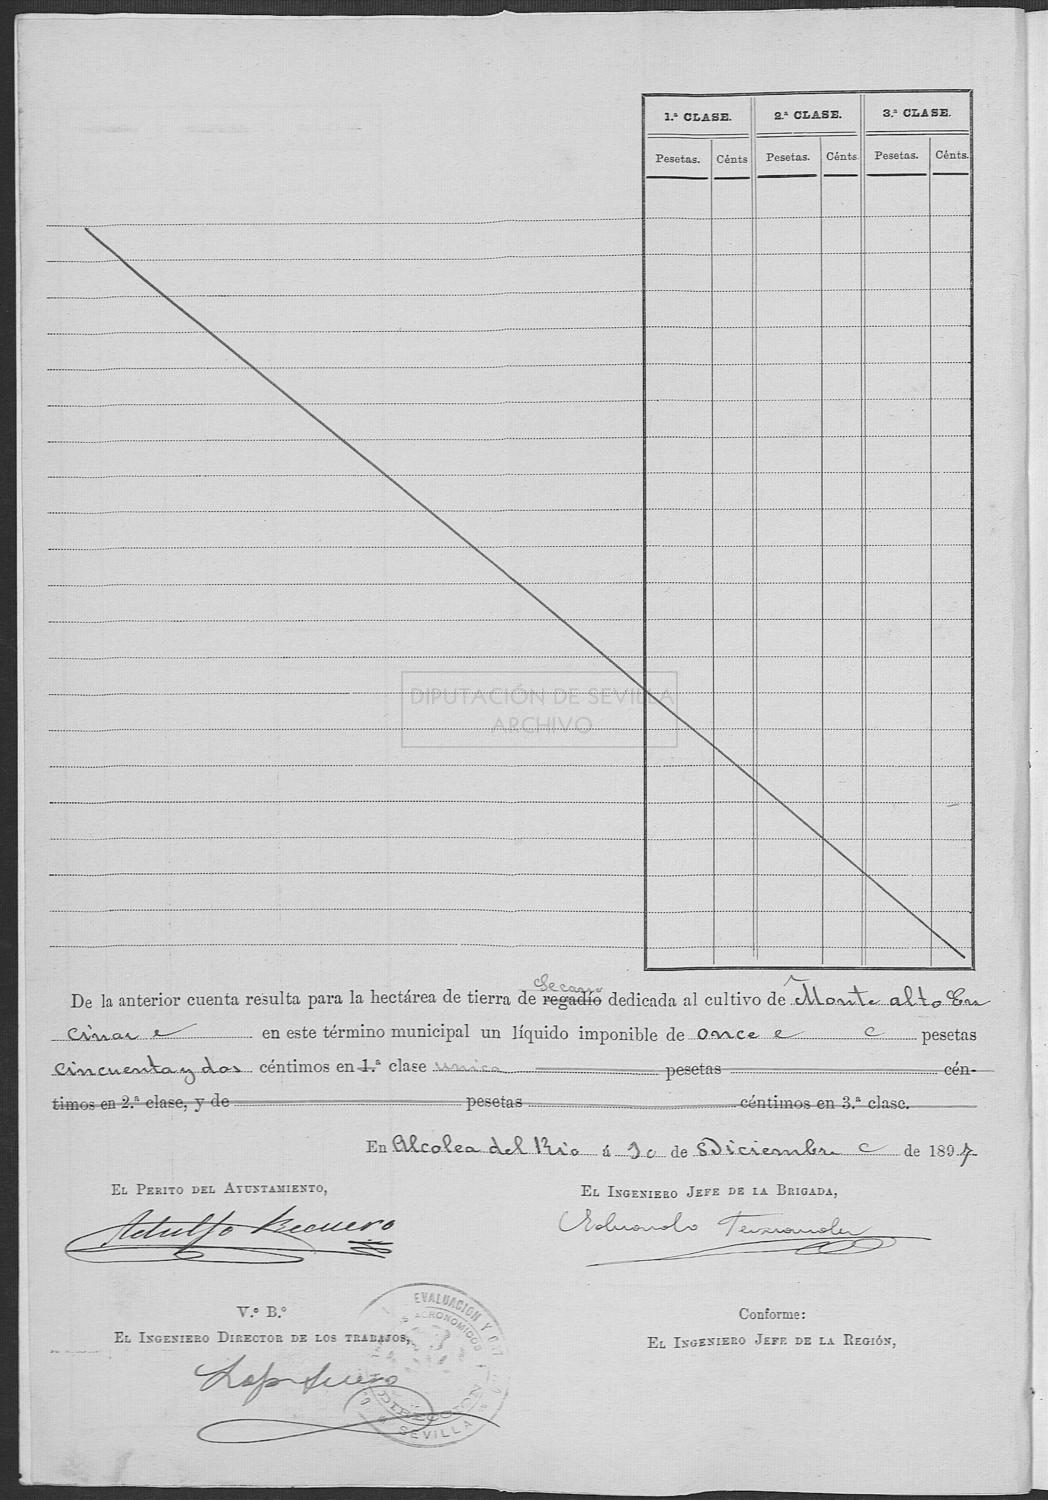 1.ª CLASE. 2.ª CLASE. 3.ª CLASE.
Pesetas. Cénts Pesetas. Cénts Pesetas. Cénts.
DIPUTACIÓN DE SEVILLA
ARCHIVO
Secano
De la anterior cuenta resulta para la hectárea de tierra de regadío dedicada al cultivo de Monte alto En
cinar en este término municipal un líquido imponible de once pesetas
cincuenta y dos céntimos en 1.ª clase unica pesetas cén-
timos en 2.ª clase, y de pesetas céntimos en 3.ª clase.
En Alcolea del Rio á 30 de Diciembre de 1897
EL PERITO DEL AYUNTAMIENTO, EL INGENIERO JEFE DE LA BRIGADA,
Adolfo Requero Eduardo Fernandez
V.º B.º Conforme:
EL INGENIERO DIRECTOR DE LOS TRABAJOS, EL INGENIERO JEFE DE LA REGIÓN,
EVALUACION Y
AGRONOMICOS
DIRECCION
SEVILLA